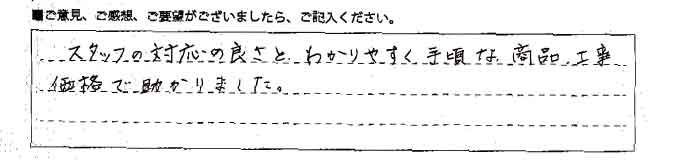 ■ご意見、ご感想、ご要望がございましたら、ご記入ください。
スタッフの対応の良さと、わかりやすく手頃な商品、工事
価格で助かりました。